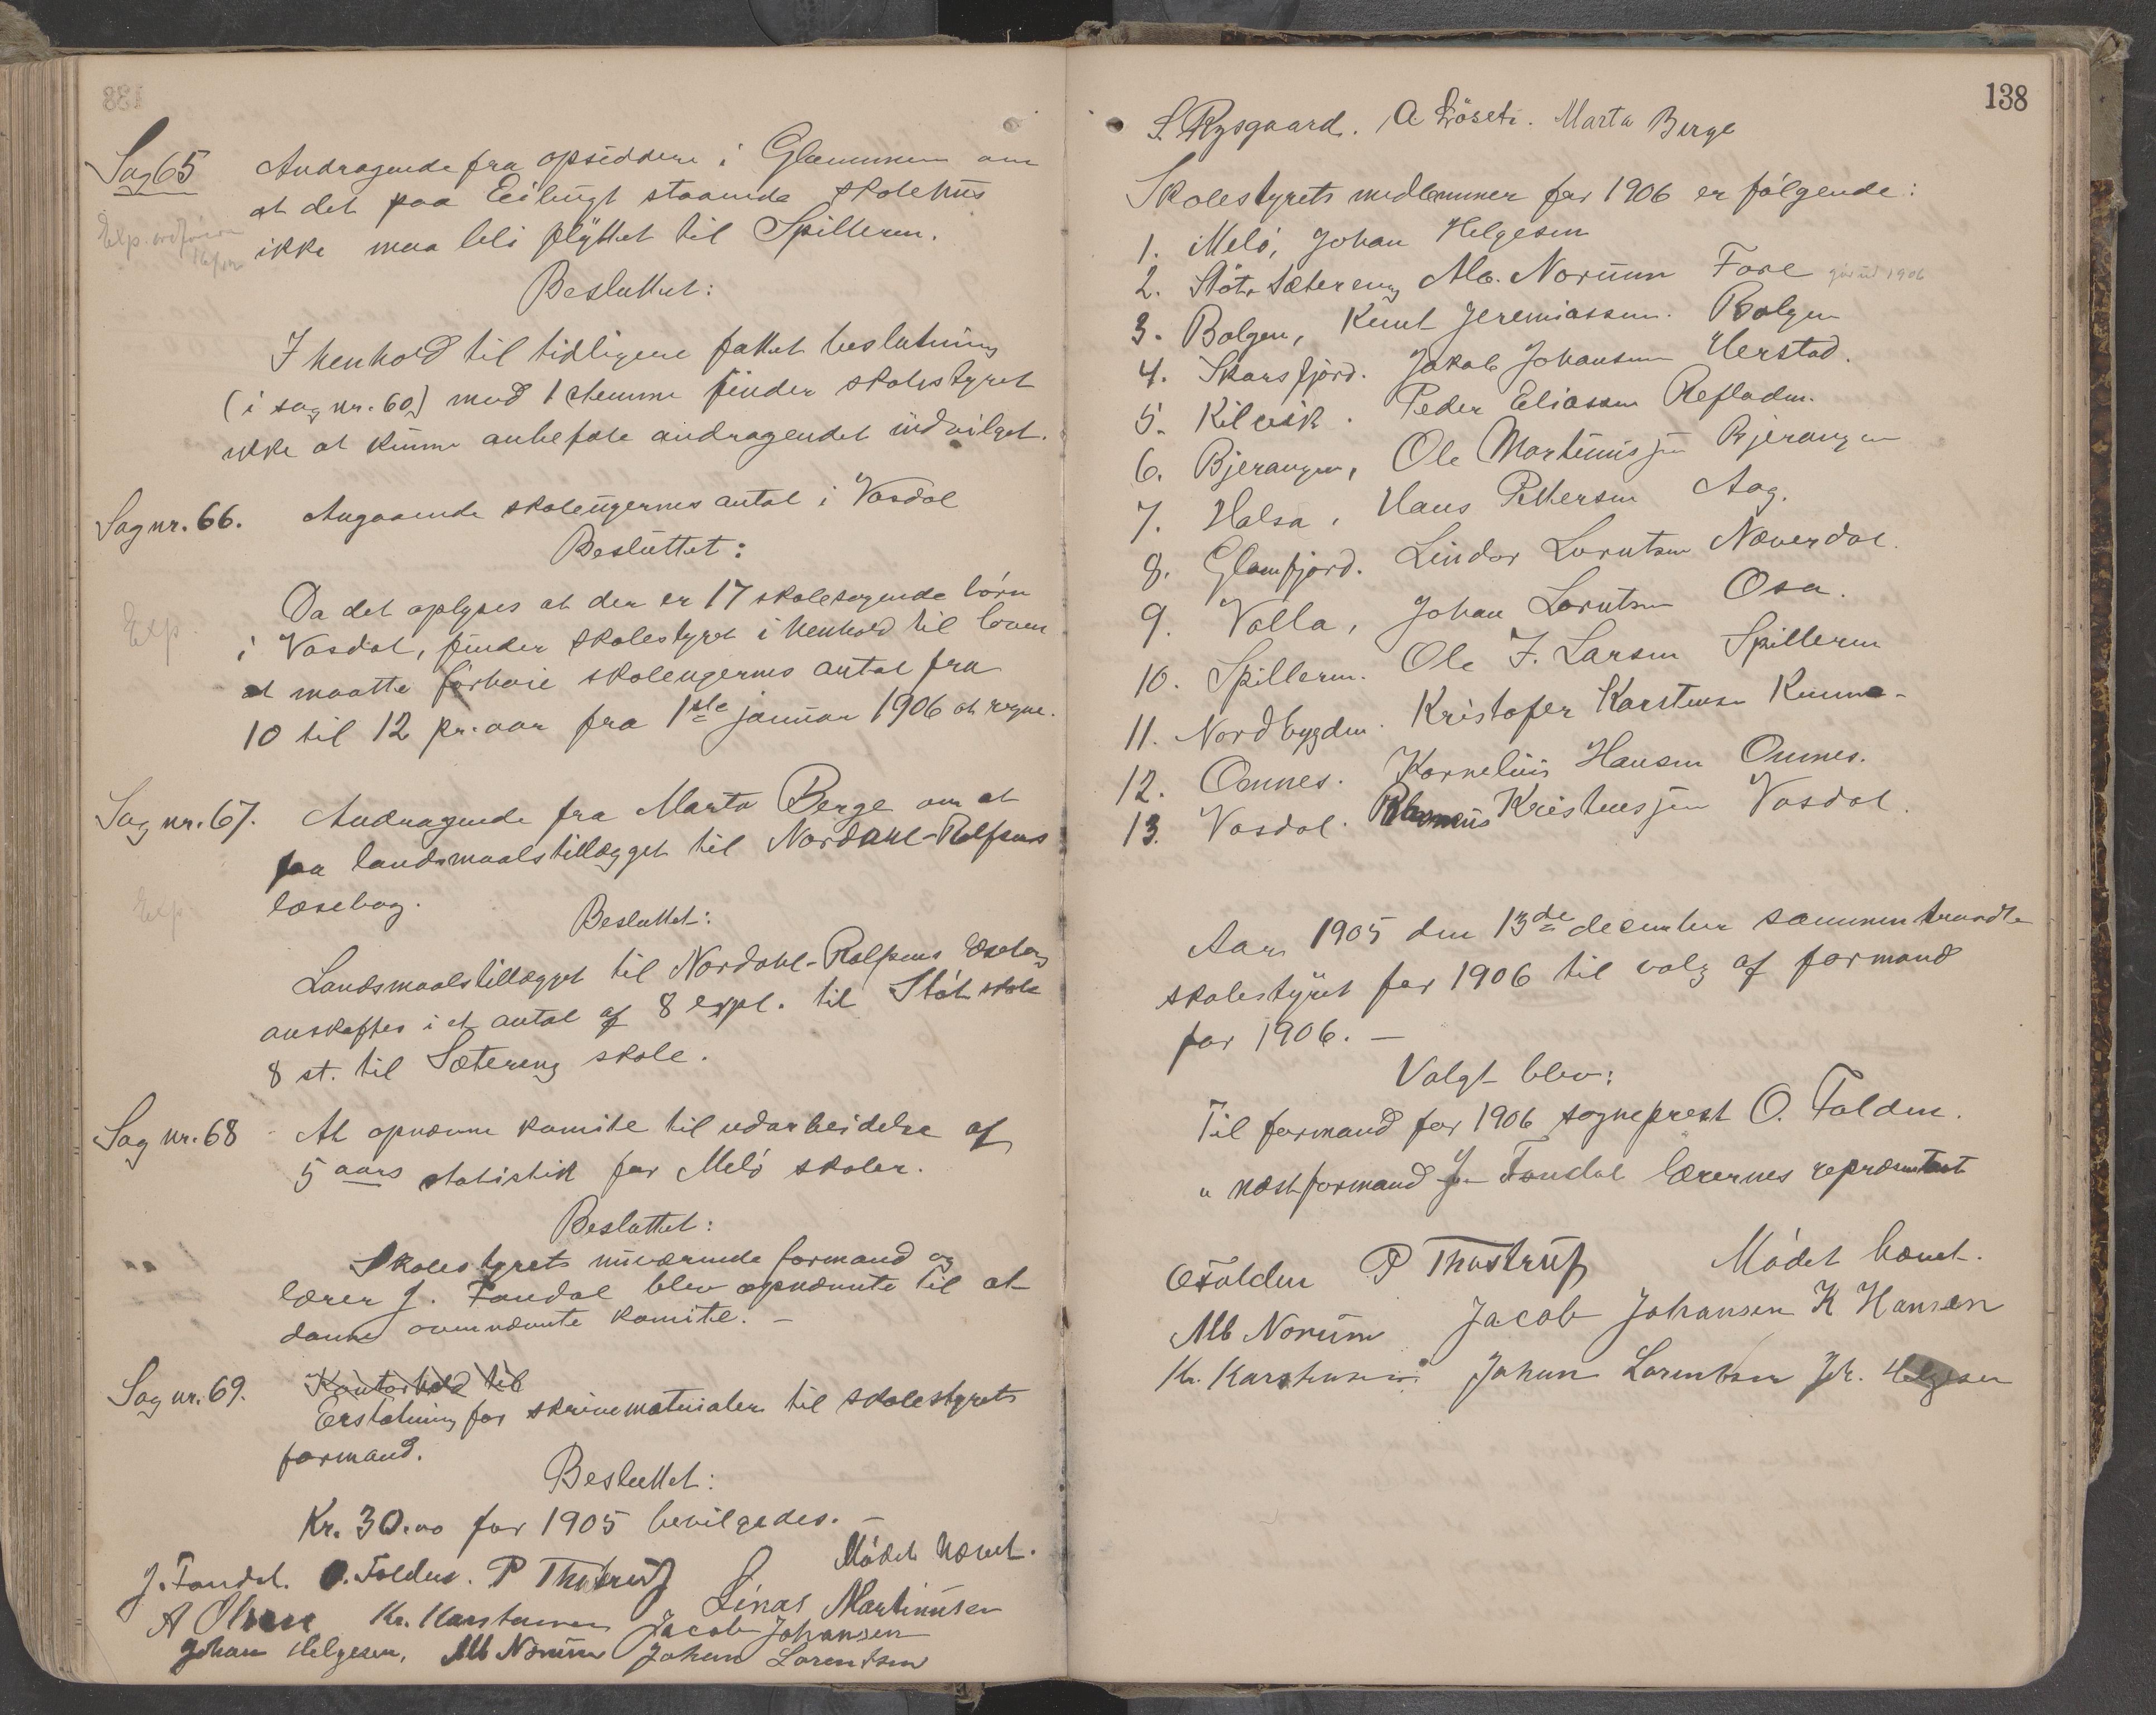 Sag 65 Andragende fra opsiddere i Glommen om
at det paa Eilingt staaende skolehus
ikke maa bli flyttet til Spilleren.
Besluttet:
I henhold til tidligere fattet beslutning
(i sag nr. 60) mod 1 stemme finder skolestyret
ikke at kunne anbefale andragendet indvilget.
Sag nr. 66. Angaaende skoleugernes antal i Vasdal
Besluttet:
Exp
Da det oplyses at der er 17 skolesøgende børn
i Vasdal, finder skolestyret i henhold til loven
at maatte forhøie skoleugernes antal fra
10 til 12 pr. aar fra 1ste januar 1906 at regne.
Sag nr. 67. Andragende fra Marta Berge om at
faa landsmaalstillægget til Nordahl-Rolfsens
læsebog.
Exp.
Besluttet:
Landsmaalstillægget til Nordahl-Rolfsens læsebog
anskaffes i et antal af 8 expl. til Støt skole
8 st. til Sætereng skole.
Sag nr. 68 At opnævne komite til udarbeidelse af
5 aars statistik for Melø skoler.
Besluttet:
Skolestyrets nuværende formand og
lærer J. Fondal blev opnævnte til at
danne ovennævnte komite. –
Sag nr. 69. Kontorhold til
Erstatning for skrivematerialer til skolestyrets
formand.
Besluttet:
Kr. 30.00 for 1905 bevilgedes. –
Mødet hævet.
J. Fondal. O. Folden. P Thustrup Linas Martinusen
A Olsen Kr. Karstensen Jacob Johansen
Johan Helgesen, Alb Norum Johan Lorentsen
138
S Rysgaard. A Løseti. Marta Berge
Skolestyrets medlemmer for 1906 er følgende:
1. Melø, Johan Helgesen
2. Støt, Sætereng Alb. Norum Fore går ud 1906
3. Bolgen, Knut Jeremiassen. Bolgen
4. Skarsfjord. Jakob Johansen Herstad.
5. Kilvik. Peder Eliassen Refladen.
6. Bjerangen, Ole Martinussen Bjerangen
7. Halsa, Hans Pettersen Aag.
8. Glomfjord. Lindor Lorntsen Næverdal.
9. Valla, Johan Lorntsen Osa.
10. Spilleren. Ole J. Larsen Spilleren
11. Nordbygden. Kristofer Karstensen Kunna-
12. Ønnes. Kornelius Hansen Ønnes.
13. Vasdal. Kristensen Vasdal.
Aar 1905 den 13de december sammentraadte
skolestyret for 1906 til valg af formand
for 1906. –
Valgt blev:
Til formand for 1906 sogneprest O. Folden.
" næstformand J. Fondal lærernes repræsentant
Mødet hævet.
OFolden P Thustrup
Alb Norum Jacob Johansen K Hansen
Kr. Karstensen Johan Lorentsen Joh. Helgesen